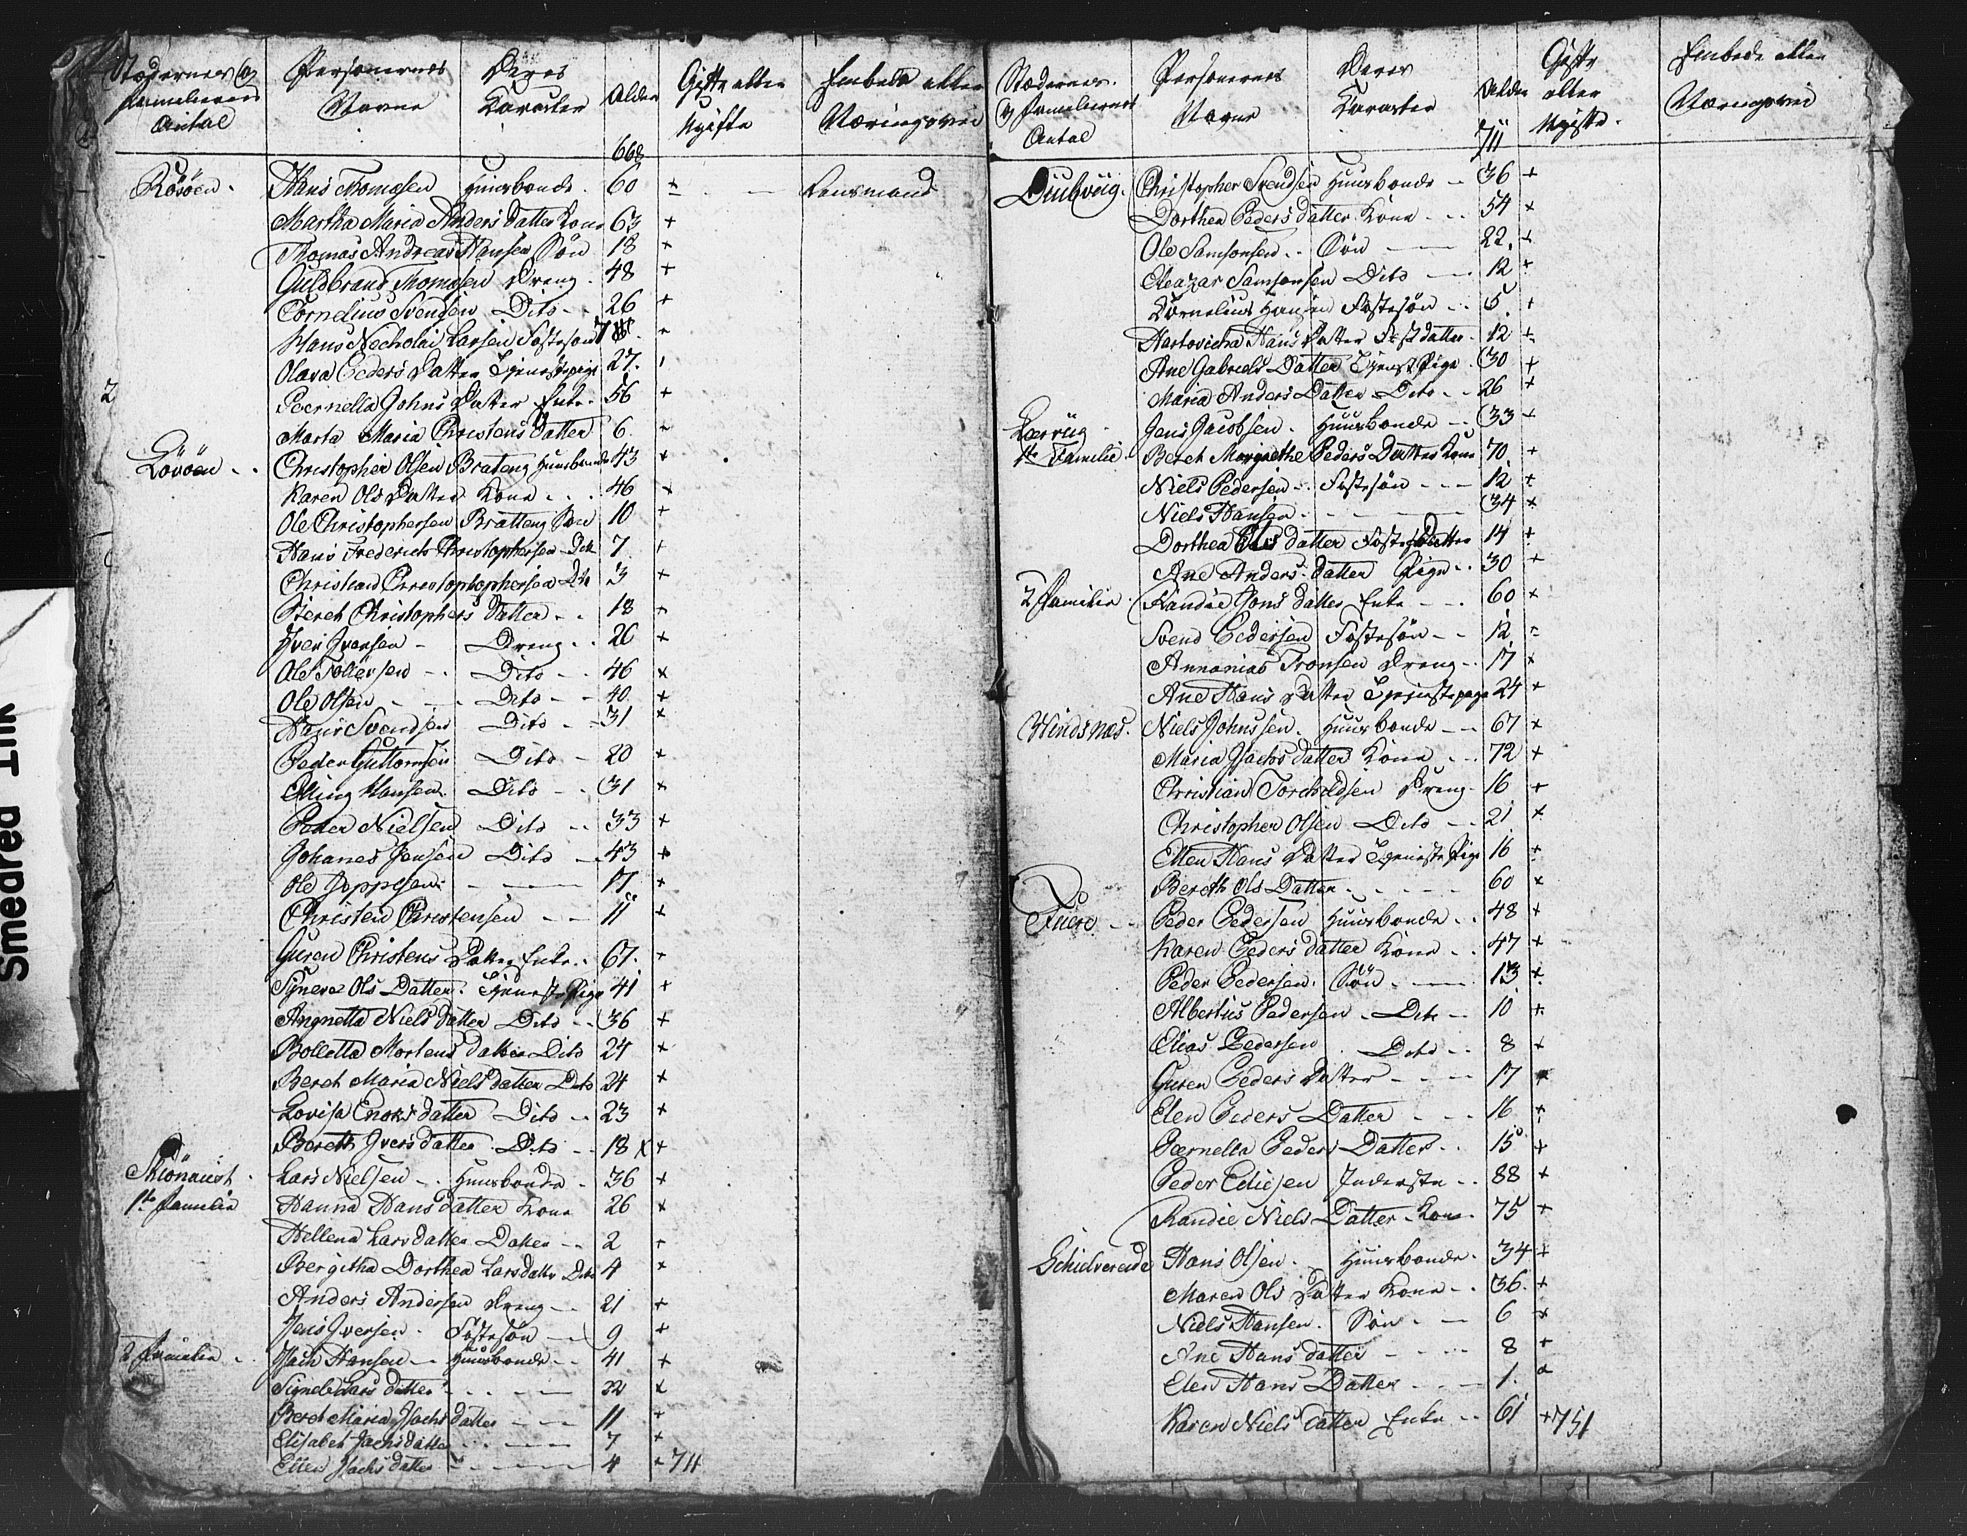 Stædernes og Familiernes Antal | Personernes Navne | Deres Karakter | Alder | Gifte eller Ugifte | Embede eller Næringsvei
668
Rosöen. Hans Thomasen Huusbonde. 60 + Lensmand
Martha Maria Anders Datter Kone 63 +
Thomas Andreas Hansen Sön 18 +
Guldbrand Thomesen Dreng. 48 +
Cornelius Svendsen Dito 26 +
Hans Necholai Larsen Fostesön 7
Olava Peders Datter Tjenestepige 27.
2
Peernella Johns Datter Enke. 56 +
Marta Maria Christens Datter 6.
Lövöen Christopher Olsen Brateng Huusbonde 43 +
Karen Ols Datter Kone 46 +
Ole Christophersen Bratteng Sön 10 +
Hans Frederich Christophersen Dito 7 +
Christian Christophophersen Dito 3 +
Bereh Christophers Datter 18 +
Iver Iversen Dreng 26 +
Ole Tollersen Dito 46 +
Ole Olsen Dito 40. +
Hans Svendsen Dito 31 +
Peder Guttormsen Dito 20 +
Elling Hansen. Dito 31 +
Peter Nielsen Dito 33 +
Johanes Jensen Dito 43 +
Ole Joppesen 17 +
Christen Christensen 11 +
Guren Christens Datter Enke 67. +
Synera Ols Datter. Tjeneste Pige 41 +
Angnetta Niels Datter Dito 36 +
Bolletta Mortens Datter Dito 24 +
Bereh Maria Niels Datter Dito 24 +
Lovisa Enoks datter Dito 23 +
Bereth Ivers datter Dito 18 x +
1te Familie Lars Nielsen Huusbonde 36 +
Hanna Hans datter Kone 26 +
Hellena Lars datter Datter 2 +
Bergitha Dorthea Larsdatter Dito 4 +
Anders Andersen Dreng 21 +
Jens Iversen. Fostesön 9 +
2 Familie Isach Hansen Huusbonde 41 +
Signe Lars datter 22 +
Bereh Maria Isachs datter 11 +
Elisabet Isachs datter 7 +
Ellen Isachs datter 4 + 711
Stædernes og Familiernes Antal | Personernes Navne | Deres Karakter | Alder | Gifte eller Ugifte. | Embede eller Næringsvei
711
Diubviig. Christopher Svendsen Huusbonde 36 +
Dorthea Peders datter Kone 54 +
Ole Samsonsen Sön 22. +
Eleazar Samsonsen Dito 12 +
Kornelius Hansen Fostesön 5. +
Hartvicha Hans Datter Fostdatter. 12 +
Ane Gabriels Datter Tjenst Pige 30 +
Maria Anders Datter Dito 26 +
Kærviig Jens Jacobsen. Huusbonde 33 +
1te Familie. Bereh Margrethe Peders Datter Kone 70 +
Niels Pedersen Fostesön 12 +
Niels Hansen 34 +
Dorthea Ols datter Foste Datter 14 +
Ane Anders datter Pige 30 +
2 Familie. Randie Jons datter Enke 60 +
Svend Pedersen Fostesön 12
Annanias Tronsen Dreng 17 +
Ane Hans Datter Tjenestepige 24 +
Windsnæs. Niels Johnssen. Huusbonde 67 +
Maria Isachs datter Kone 72 +
Christian Torchildsen Dreng 16 +
Christopher Olsen Dito 21 +
Ellen Hans Datter Tjeneste Pige 16 +
Bereth Ols Datter 60 +
Fuere Peder Pedersen Huusbonde 48 +
Karen Peders datter Kone 47 +
Peder Pedersen. Sön 13. +
Albertius Pedersen Dito 10 +
Elias Pedersen Dito 8 +
Guren Peders Datter 17
Elen Peders Datter 16 +
Pærnella Peders Datter 15 +
Peder Edisen Inderste 88 +
Randie Niels Datter Kone 75 +
Hans Olsen. Huusbonde. 34 +
Maren Ols Datter Kone 36. +
Niels Hansen. Sön 6 +
Ane Hans datter 8 +
Elen Hans Datter 1.
Karen Niels datter Enke 61 + 751
Smedred Ink